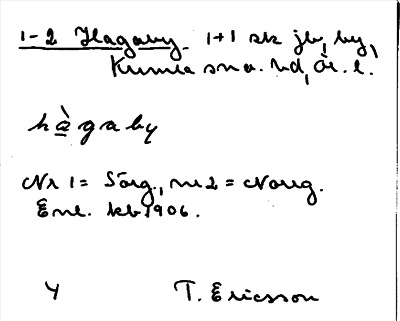 1-2 Hagaby 1+1 sk jb, by,
Kumla sn o. hd, Ör. l.
hàgaby
Nr 1 = Sörg., nr 2 = Norrg.
Enl. kb 1906.
4
T. Ericsson